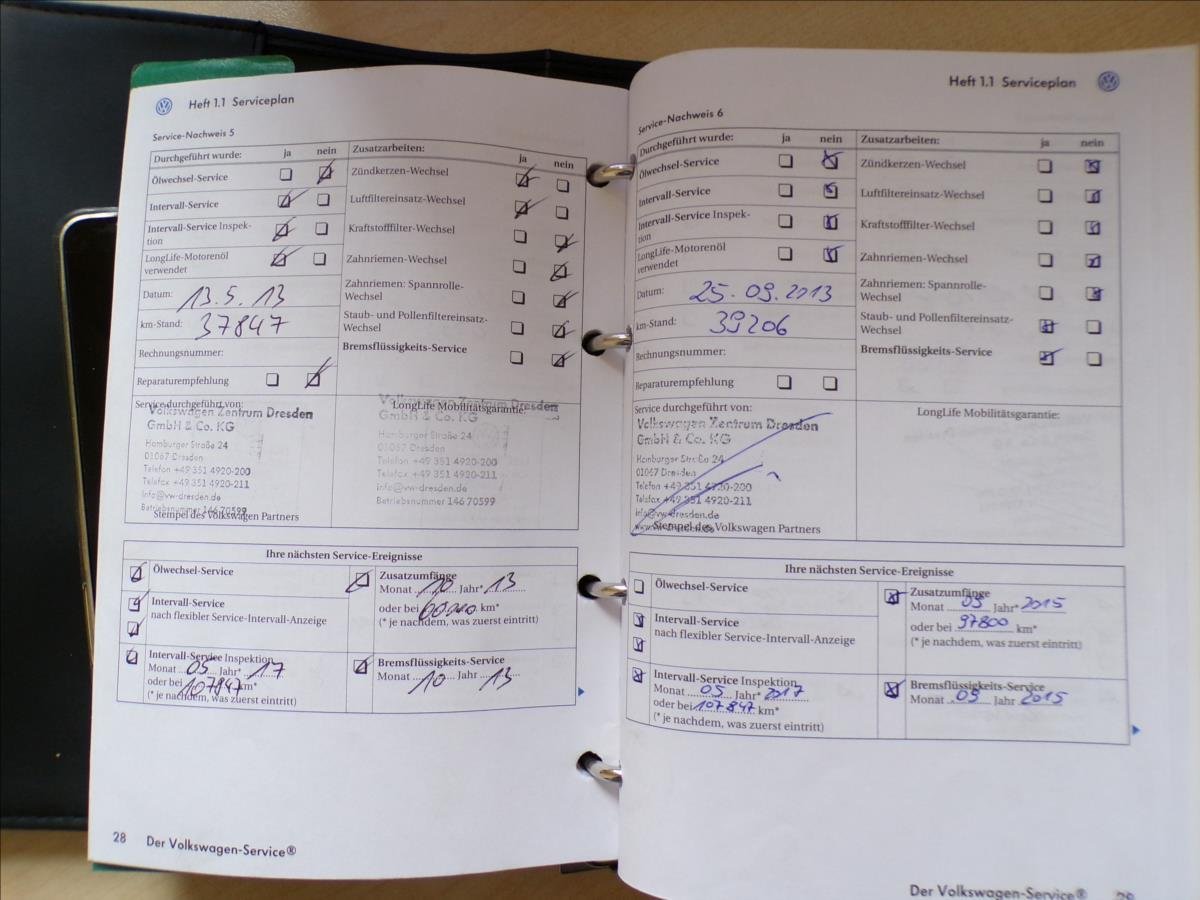 Heft 1.1 Serviceplan
Service-Nachweis 5
Durchgeführt wurde: ja nein
Ölwechsel-Service
Intervall-Service
Intervall-Service Inspek-
tion
LongLife-Motorenöl
verwendet
Datum: 13.5.13
km-Stand: 37847
Rechnungsnummer:
Reparaturempfehlung
Zusatzarbeiten: ja nein
Zündkerzen-Wechsel
Luftfiltereinsatz-Wechsel
Kraftstofffilter-Wechsel
Zahnriemen-Wechsel
Zahnriemen: Spannrolle-
Wechsel
Staub- und Pollenfiltereinsatz-
Wechsel
Bremsflüssigkeits-Service
Service durchgeführt von:
Volkswagen Zentrum Dresden
GmbH & Co. KG
Hamburger Straße 24
01067 Dresden
Telefon +49 351 4920-200
Telefax +49 351 4920-211
info@vw-dresden.de
Betriebsnummer 146 70599
Stempel des Volkswagen Partners
LongLife Mobilitätsgarantie:
Volkswagen Zentrum Dresden
GmbH & Co. KG
Hamburger Straße 24
01067 Dresden
Telefon +49 351 4920-200
Telefax +49 351 4920-211
info@vw-dresden.de
Betriebsnummer 146 70599
Ihre nächsten Service-Ereignisse
Ölwechsel-Service
Intervall-Service
nach flexibler Service-Intervall-Anzeige
Intervall-Service Inspektion
Monat 05 Jahr* 17
oder bei 107847 km*
(* je nachdem, was zuerst eintritt)
Zusatzumfänge
Monat 10 Jahr* 13
oder bei km*
(* je nachdem, was zuerst eintritt)
Bremsflüssigkeits-Service
Monat 10 Jahr 13
28 Der Volkswagen-Service®
Heft 1.1 Serviceplan
Service-Nachweis 6
Durchgeführt wurde: ja nein
Ölwechsel-Service
Intervall-Service
Intervall-Service Inspek-
tion
LongLife-Motorenöl
verwendet
Datum: 25.09.2013
km-Stand: 39206
Rechnungsnummer:
Reparaturempfehlung
Zusatzarbeiten: ja nein
Zündkerzen-Wechsel
Luftfiltereinsatz-Wechsel
Kraftstofffilter-Wechsel
Zahnriemen-Wechsel
Zahnriemen: Spannrolle-
Wechsel
Staub- und Pollenfiltereinsatz-
Wechsel
Bremsflüssigkeits-Service
Service durchgeführt von:
Volkswagen Zentrum Dresden
GmbH & Co. KG
Hamburger Straße 24
01067 Dresden
Telefon +49 351 4920-200
Telefax +49 351 4920-211
info@vw-dresden.de
www.vw-dresden.de
Stempel des Volkswagen Partners
LongLife Mobilitätsgarantie:
Ihre nächsten Service-Ereignisse
Ölwechsel-Service
Intervall-Service
nach flexibler Service-Intervall-Anzeige
Intervall-Service Inspektion
Monat 05 Jahr* 2017
oder bei 107847 km*
(* je nachdem, was zuerst eintritt)
Zusatzumfänge
Monat 09 Jahr* 2015
oder bei 97800 km*
(* je nachdem, was zuerst eintritt)
Bremsflüssigkeits-Service
Monat 09 Jahr 2015
Der Volkswagen-Service®